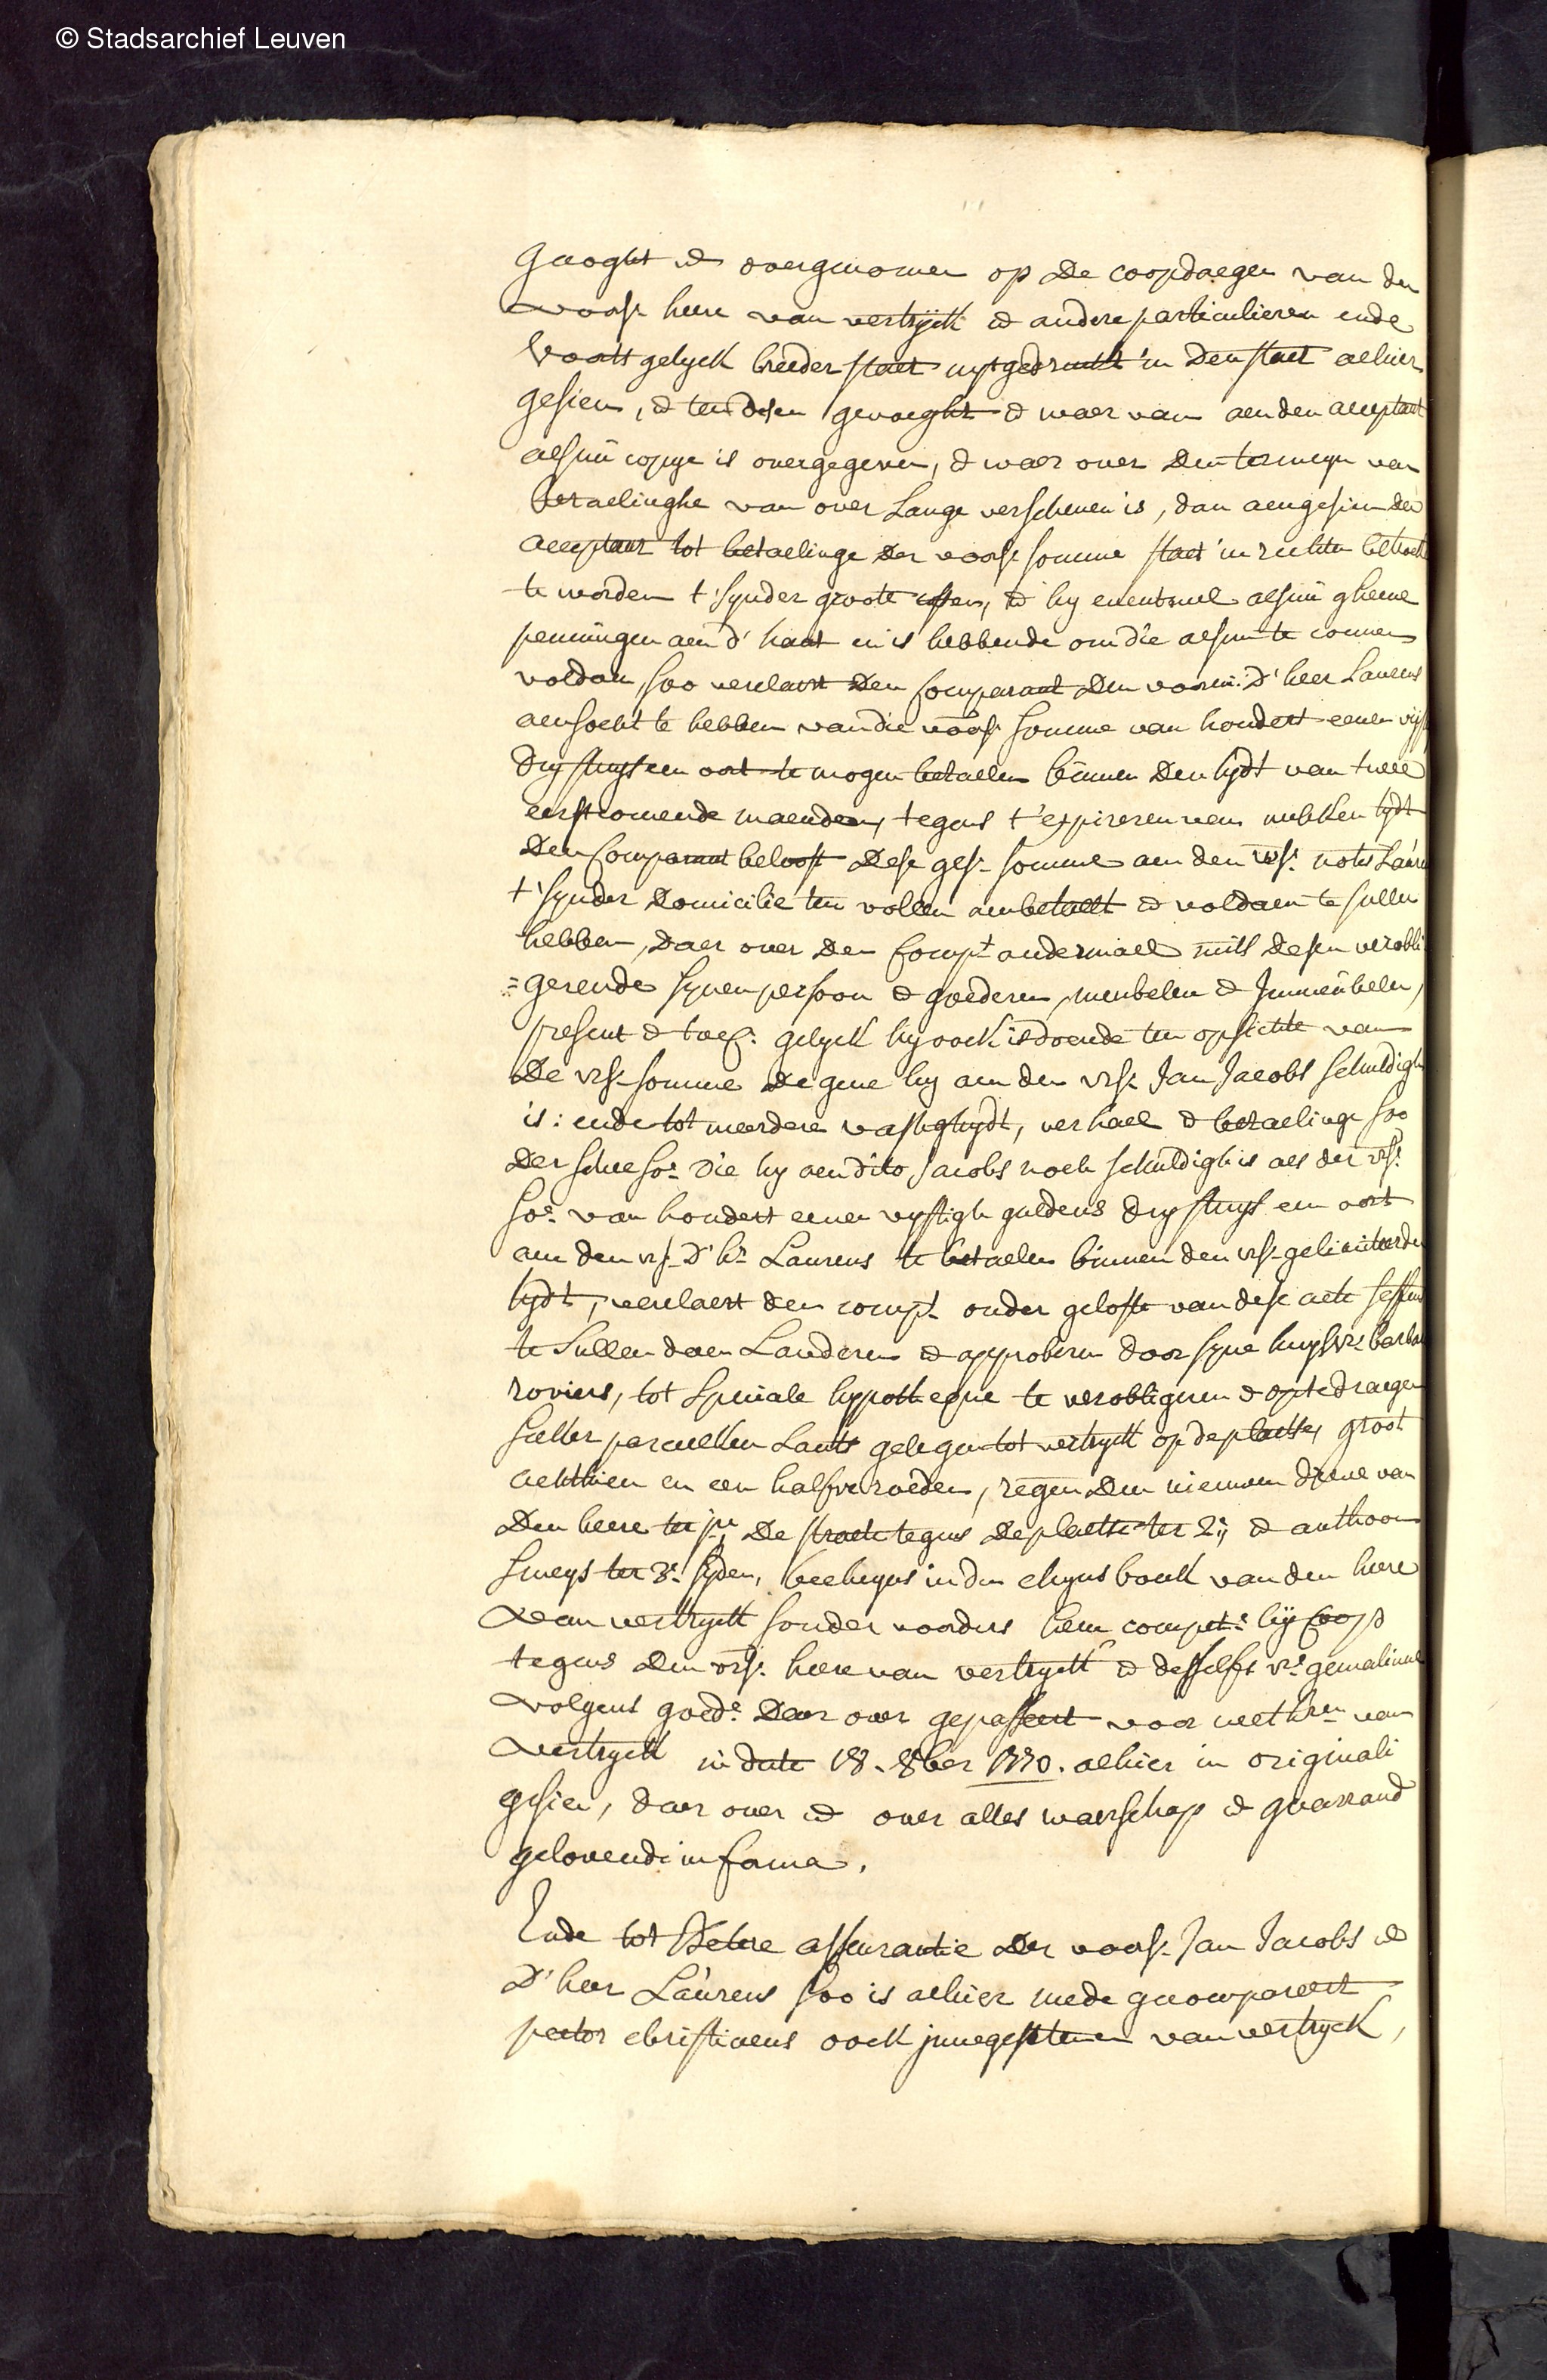 © Stadsarchief Leuven
gecoght ende overgenomen op de coopdaegen van den
voors. heere van vertrijck ende andere particulieren ende
voorts gelyck breeder staet uytgedruckt in den staet alhier
gesien, ende ten desen gevoeght ende waer van aen den acceptant
alsnu copye is overgegeven, ende waer over den termeyn van
betaelinghe van over lange verschenen is, dan aengesien den
acceptant tot betaelinge der voors. somme staet in rechte betrock
te worden t'synder groote costen, ende hy eventueel alsnu gheene
penningen aen d'hant en is hebbende om die alsnu te connen
voldoen, soo verclaert den comparant den voorn. d'heer Laurens
aensocht te hebben van die voors. somme van hondert eenen vijf
dry stuyvers een oort te mogen betaelen binnen den tydt van twee
eerstcomende maenden, tegens t'expireren van welcken tydt
den comparant belooft dese ges. somme aen den vrs. notris Laure
t'synder domicilie ten vollen aenbetaelt ende voldaen te sullen
hebben, daer over den compt andermael mits desen verobli
=gerende synen persoon ende goederen, meubelen ende immeubelen,
present ende toec. gelyck hy oock is doende ten opsichte van
de vrs. somme de gene hy aen den vrs. Jan Jacobs schuldigh
is: ende tot meerdere vastigheydt, verhael ende betaelinge soo
der selve so.e die hy aen dito Jacobs noch schuldigh is als der vrs.
so.e van hondert eenen vyftigh guldens dry stuyvers een oort
aen den vrs. d'hr Laurens te betaelen binnen den vrs. gelimiteerden
tydt, verclaert den compt. onder gelofte van dese acte
te sullen doen lauderen ende approberen door syne huysvre. barbar
roviers, tot speciale hypotheque te verobligeren ende op te draegen
seker parceelken lants gelegen tot vertryck op de plaetse, groot
achthien en een halfve roeden, regen. den nieuwen dreve van
den heere ter je, de straete tegens de plaetse ter 2ij ende anthoon
smeys ter 3e syden, becheyns in den cheyns boeck van den heere
van vertryck sonder voorders hem compet. bij coop
tegens den vrs. heere van vertryck ende desselfs vre. gemalinne
volgens goed.e daer over gepasseert voor wethren. van
vertryck in date 18. 8ber 1770. alhier in originali
gesien, daer over ende over alles waerschap ende guarrand
gelovende in forma.
Ende tot betere asseurantie der voors. Jan Jacobs ende
d'heer Laurens soo is alhier mede gecompareert
peeter christiaens oock innegesetenen van vertryck,